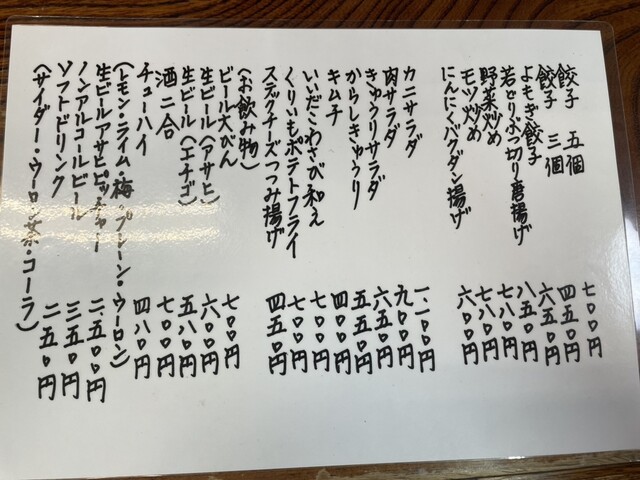 餃子 五個 七〇〇円
餃子 三個 四五〇円
よもぎ餃子 六五〇円
若どりぶつ切り唐揚げ 八五〇円
野菜炒め 七八〇円
モツ炒め 七八〇円
にんにくバクダン揚げ 六〇〇円
カニサラダ 一、一〇〇円
肉サラダ 九〇〇円
きゅうりサラダ 六五〇円
からしきゅうり 五五〇円
キムチ 四〇〇円
いいだこわさび和え 七〇〇円
くりいもポテトフライ 七〇〇円
チーズつつみ揚げ 四五〇円
(お飲み物)
ビール大びん 七〇〇円
生ビール(アサヒ) 六〇〇円
生ビール(エチゴ) 五八〇円
酒二合 七〇〇円
チューハイ 四八〇円
(レモン・ライム・梅・プレーン・ウーロン)
生ビールアサヒピッチャー 二、五〇〇円
ノンアルコールビール 三五〇円
ソフトドリンク 二五〇円
(サイダー・ウーロン茶・コーラ)